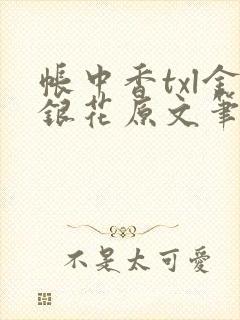 帳中香txl金
銀花原文筆
不是太可愛